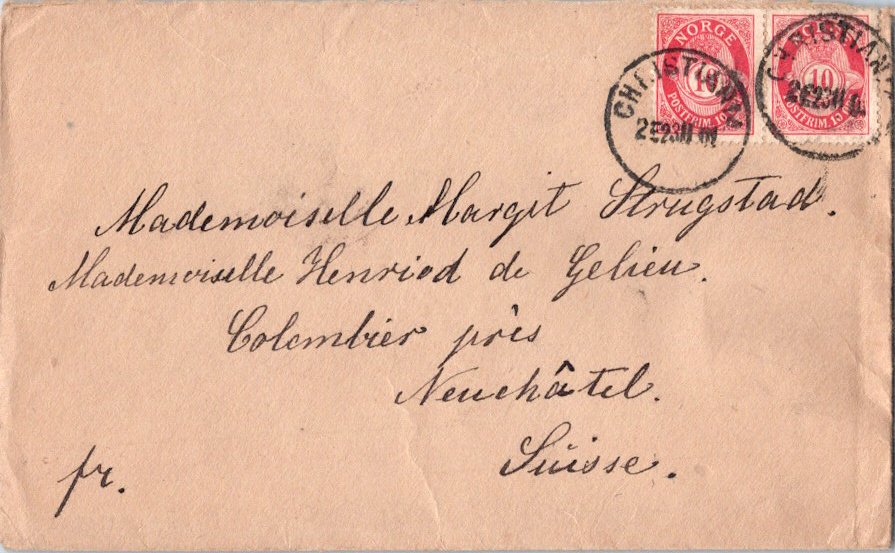 NORGE
10
POSTFRIM. 10
10
POSTFRIM. 10
CHRISTIANIA
CHRISTIAN
Mademoiselle Margit Strugstad.
Mademoiselle Henriod de Gelieu.
Colombier près
Neuchâtel.
Suisse.
fr.